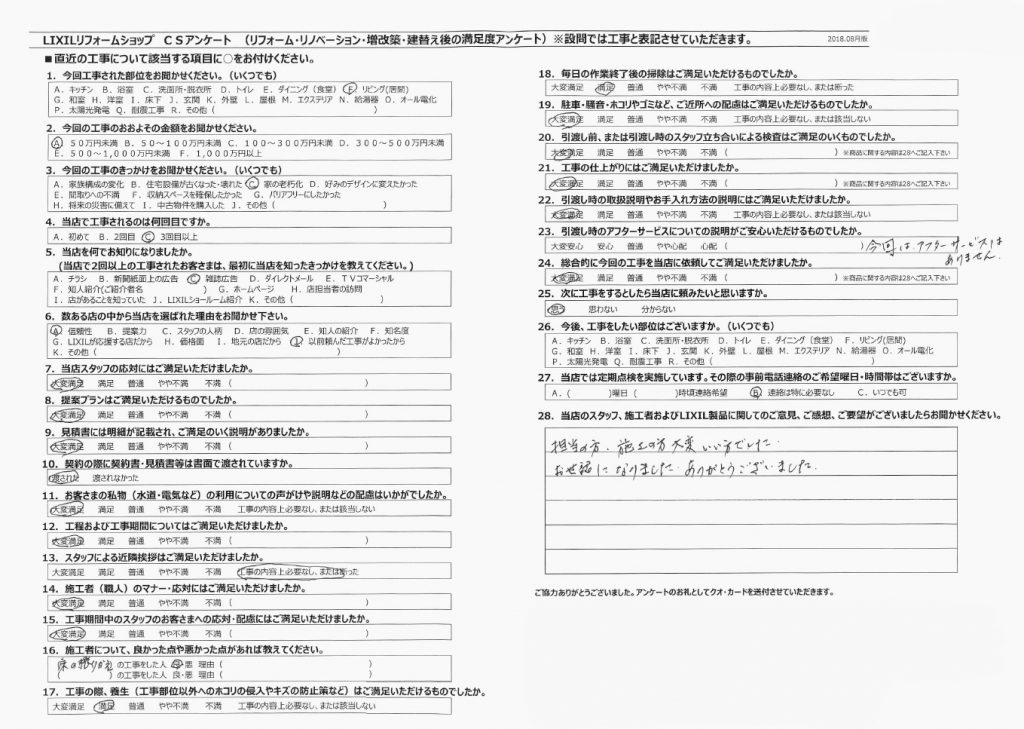 LIXILリフォームショップ CSアンケート (リフォーム・リノベーション・増改築・建替え後の満足度アンケート)※設問では工事と表記させていただきます。
2018.08月版
■直近の工事について該当する項目に○をお付けください。
1.今回工事された部位をお聞かせください。(いくつでも)
A.キッチン B.浴室 C.洗面所・脱衣所 D.トイレ E.ダイニング(食堂) F.リビング(居間)
G.和室 H.洋室 I.床下 J.玄関 K.外壁 L.屋根 M.エクステリア N.給湯器 O.オール電化
P.太陽光発電 Q.耐震工事 R.その他( )
2.今回の工事のおおよその金額をお聞かせください。
A 50万円未満 B.50~100万円未満 C.100~300万円未満 D.300~500万円未満
E.500~1,000万円未満 F.1,000万円以上
3.今回の工事のきっかけをお聞かせください。(いくつでも)
A.家族構成の変化 B.住宅設備が古くなった・壊れた C 家の老朽化 D.好みのデザインに変えたかった
E.間取りへの不満 F.収納スペースを確保したかった G.バリアフリーにしたかった
H.将来の災害に備えて I.中古物件を購入した J.その他( )
4.当店で工事されるのは何回目ですか。
A.初めて B.2回目 C 3回目以上
5.当店を何でお知りになりましたか。
(当店で2回以上の工事されたお客さまは、最初に当店を知ったきっかけを教えてください。)
A.チラシ B.新聞紙面上の広告 C 雑誌広告 D.ダイレクトメール E.TVコマーシャル
F.知人紹介(ご紹介者名 ) G.ホームページ H.店担当者の訪問
I.店があることを知っていた J.LIXILショールーム紹介 K.その他( )
6.数ある店の中から当店を選ばれた理由をお聞かせ下さい。
A 信頼性 B.提案力 C.スタッフの人柄 D.店の雰囲気 E.知人の紹介 F.知名度
G.LIXILが応援する店だから H.価格面 I.地元の店だから J 以前頼んだ工事がよかったから
K.その他( )
7.当店スタッフの応対にはご満足いただけましたか。
大変満足 満足 普通 やや不満 不満( )
8.提案プランはご満足いただけるものでしたか。
大変満足 満足 普通 やや不満 不満( )
9.見積書には明細が記載され、ご満足のいく説明がありましたか。
大変満足 満足 普通 やや不満 不満( )
10.契約の際に契約書・見積書等は書面で渡されていますか。
渡された 渡されなかった
11.お客さまの私物(水道・電気など)の利用についての声がけや説明などの配慮はいかがでしたか。
大変満足 満足 普通 やや不満 不満 工事の内容上必要なし、または該当しない
12.工程および工事期間についてはご満足いただけましたか。
大変満足 満足 普通 やや不満 不満( )
13.スタッフによる近隣挨拶はご満足いただけましたか。
大変満足 満足 普通 やや不満 不満 工事の内容上必要なし、または断った
14.施工者(職人)のマナー・応対にはご満足いただけましたか。
大変満足 満足 普通 やや不満 不満( )
15.工事期間中のスタッフのお客さまへの応対・配慮にはご満足いただけましたか。
大変満足 満足 普通 やや不満 不満( )
16.施工者について、良かった点や悪かった点があれば教えてください。
(床の張りかえ の工事をした人 良・悪 理由( )
( )の工事をした人 良・悪 理由( )
17.工事の際、養生(工事部位以外へのホコリの侵入やキズの防止策など)はご満足いただけるものでしたか。
大変満足 満足 普通 やや不満 不満 工事の内容上必要なし、または該当しない
18.毎日の作業終了後の掃除はご満足いただけるものでしたか。
大変満足 満足 普通 やや不満 不満 工事の内容上必要なし、または断った
19.駐車・騒音・ホコリやゴミなど、ご近所への配慮はご満足いただけるものでしたか。
大変満足 満足 普通 やや不満 不満( )
20.引渡し前、または引渡し時のスタッフ立ち合いによる検査はご満足のいくものでしたか。
大変満足 満足 普通 やや不満 不満( )※商品に関する内容は28へご記入下さい
21.工事の仕上がりにはご満足いただけましたか。
大変満足 満足 普通 やや不満 不満( )※商品に関する内容は28へご記入下さい
22.引渡し時の取扱説明やお手入れ方法の説明にはご満足いただけましたか。
大変満足 満足 普通 やや不満 不満 工事の内容上必要なし、または該当しない
23.引渡し時のアフターサービスについての説明がご安心いただけるものでしたか。
大変安心 安心 普通 やや心配 心配( ) 今回は、アフターサービスは
ありません。
24.総合的に今回の工事を当店に依頼してご満足いただけましたか。
大変満足 満足 普通 やや不満 不満( )※商品に関する内容は28へご記入下さい
25.次に工事をするとしたら当店に頼みたいと思いますか。
思う 思わない 分からない
26.今後、工事をしたい部位はございますか。(いくつでも)
A.キッチン B.浴室 C.洗面所・脱衣所 D.トイレ E.ダイニング(食堂) F.リビング(居間)
G.和室 H.洋室 I.床下 J.玄関 K.外壁 L.屋根 M.エクステリア N.給湯器 O.オール電化
P.太陽光発電 Q.耐震工事 R.その他( )
27.当店では定期点検を実施しています。その際の事前電話連絡のご希望曜日・時間帯はございますか。
A.( )曜日( )時頃連絡希望 B 連絡は特に必要なし C.いつでも可
28.当店のスタッフ、施工者およびLIXIL製品に関してのご意見、ご感想、ご要望がございましたらお聞かせください。
担当の方、施工の方大変いい方でした。
お世話になりました。ありがとうございました。
ご協力ありがとうございました。アンケートのお礼としてクオ・カードを送付させていただきます。